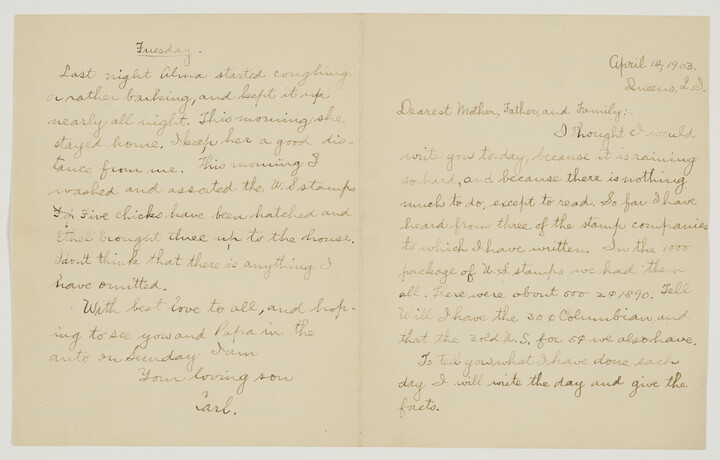 April 14, 1903.
Queens, L.I.
Dearest Mother, Father, and Family:-
I thought I would
write you to-day, because it is raining
so hard, and because there is nothing
much to do, except to read. So far I have
heard from three of the stamp companies
to which I have written. In the 1000
package of U.S. stamps we had them
all. There were about 500 2¢ 1890. Tell
Will I have the 30¢ Columbian, and
that the 2 old U.S. for 5¢ we also have.
To tell you what I have done each
day I will write the day and give the
facts.
Tuesday.
Last night Alma started coughing
or rather barking, and kept it up
nearly all night. This morning she
stayed home. I keep her a good dis-
tance from me. This morning I
washed and assorted the U.S. stamps
Five chicks have been hatched and
Ethel brought three up to the house.
I don't think that there is anything I
have omitted.
With best love to all, and hop-
ing to see you and Papa in the
auto on Sunday I am
Your loving son
Carl.